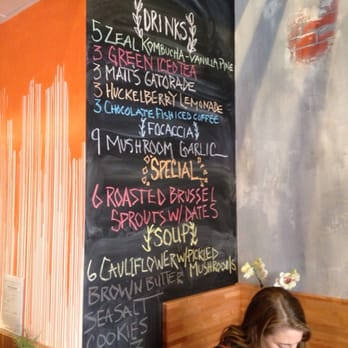 DRINKS
5 ZEAL KOMBUCHA-VANILLA PINE
3 GREEN ICED TEA
3 MATT'S GATORADE
3 HUCKELBERRY LEMONADE
3 CHOCOLATE FISH ICED COFFEE
FOCACCIA
9 MUSHROOM GARLIC
SPECIAL
6 ROASTED BRUSSEL
SPROUTS W/ DATES
SOUP
6 CAULIFLOWER W/ PICKLED
MUSHROOMS
BROWN BUTTER
SEA SALT
COOKIES